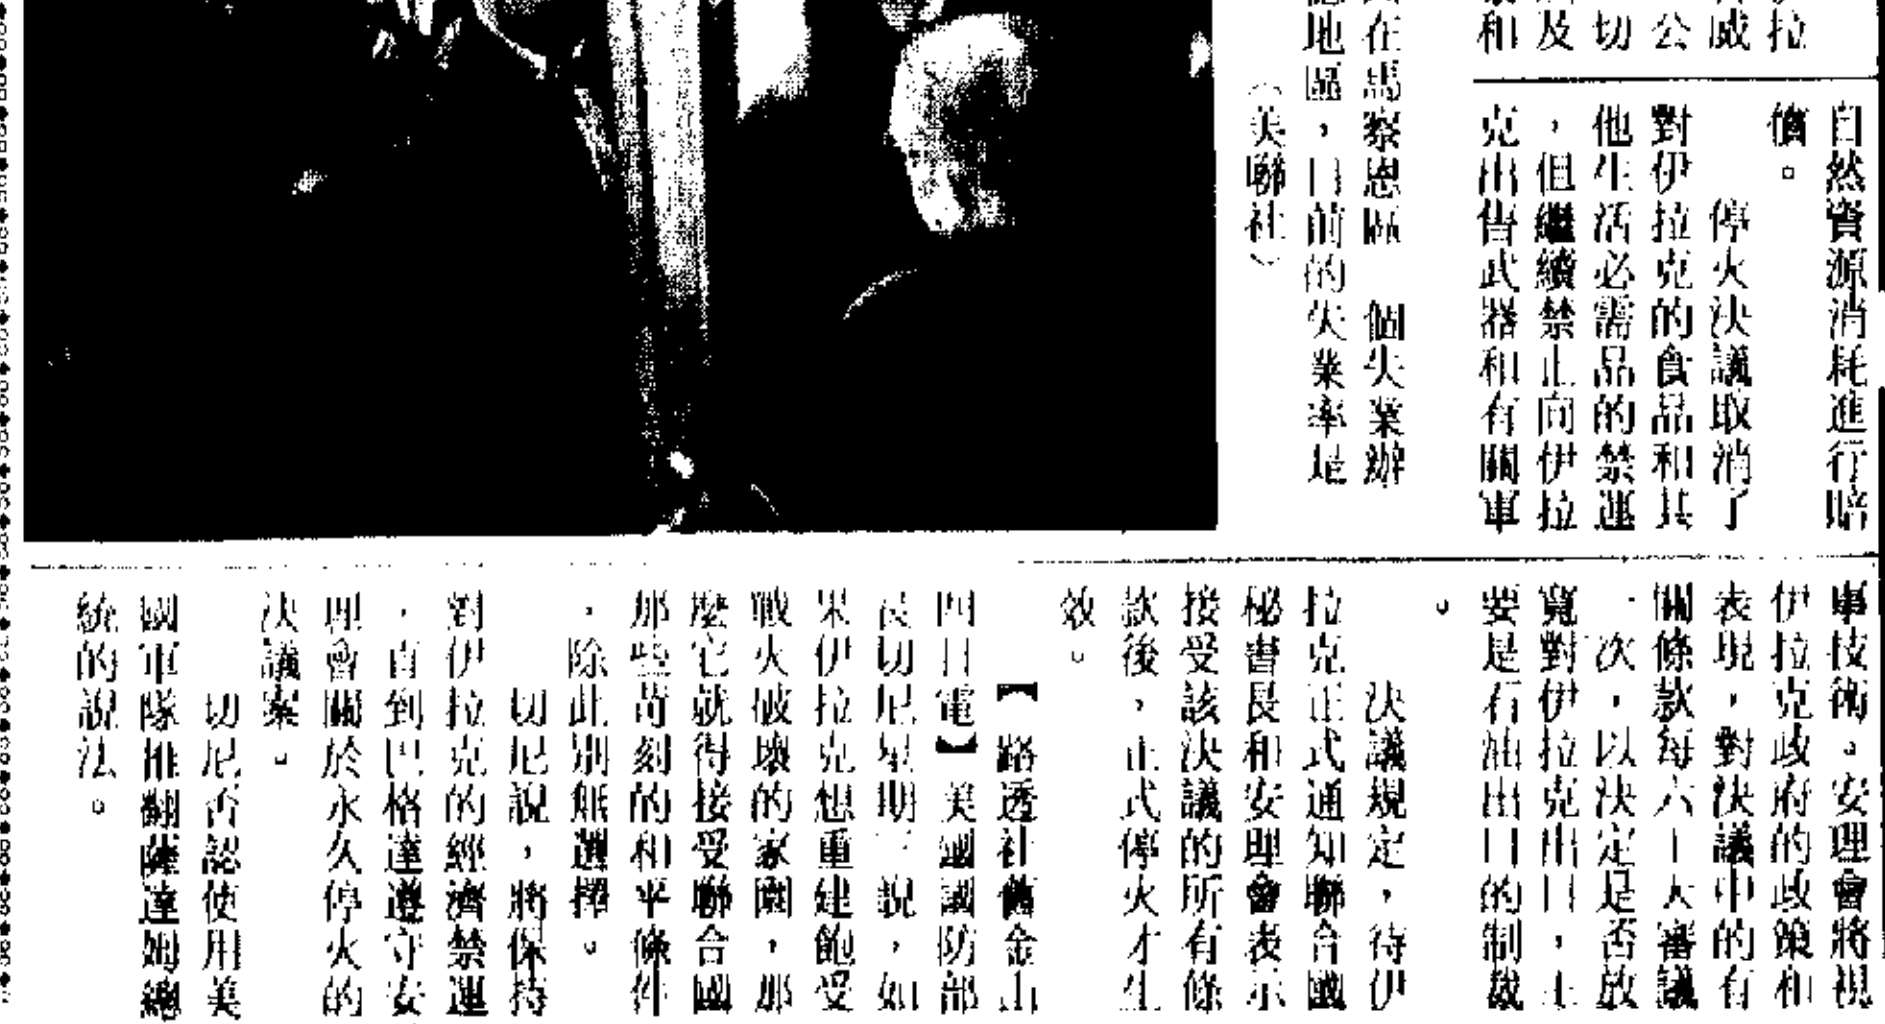 拉
威
公
切
及
和
自然資源消耗進行賠
償。
停火決議取消了
對伊拉克的食品和其
他生活必需品的禁運
，但繼續禁止向伊拉
克出售武器和有關軍
事技術。安理會將視
伊拉克政府的政策和
表現，對決議中的有
關條款每六十天審議
一次，以決定是否放
寬對伊拉克出口，主
要是石油出口的制裁
。
決議規定，待伊
拉克正式通知聯合國
秘書長和安理會表示
接受該決議的所有條
款後，正式停火才生
效。
【路透社舊金山
四日電】美國國防部
長切尼星期三說，如
果伊拉克想重建飽受
戰火破壞的家園，那
麼它就得接受聯合國
那些苛刻的和平條件
，除此別無選擇。
切尼說，將保持
對伊拉克的經濟禁運
，直到巴格達遵守安
理會關於永久停火的
決議案。
切尼否認使用美
國軍隊推翻薩達姆總
統的說法。
在馬察恩區 個失業辦
地區，目前的失業率是
（美聯社）